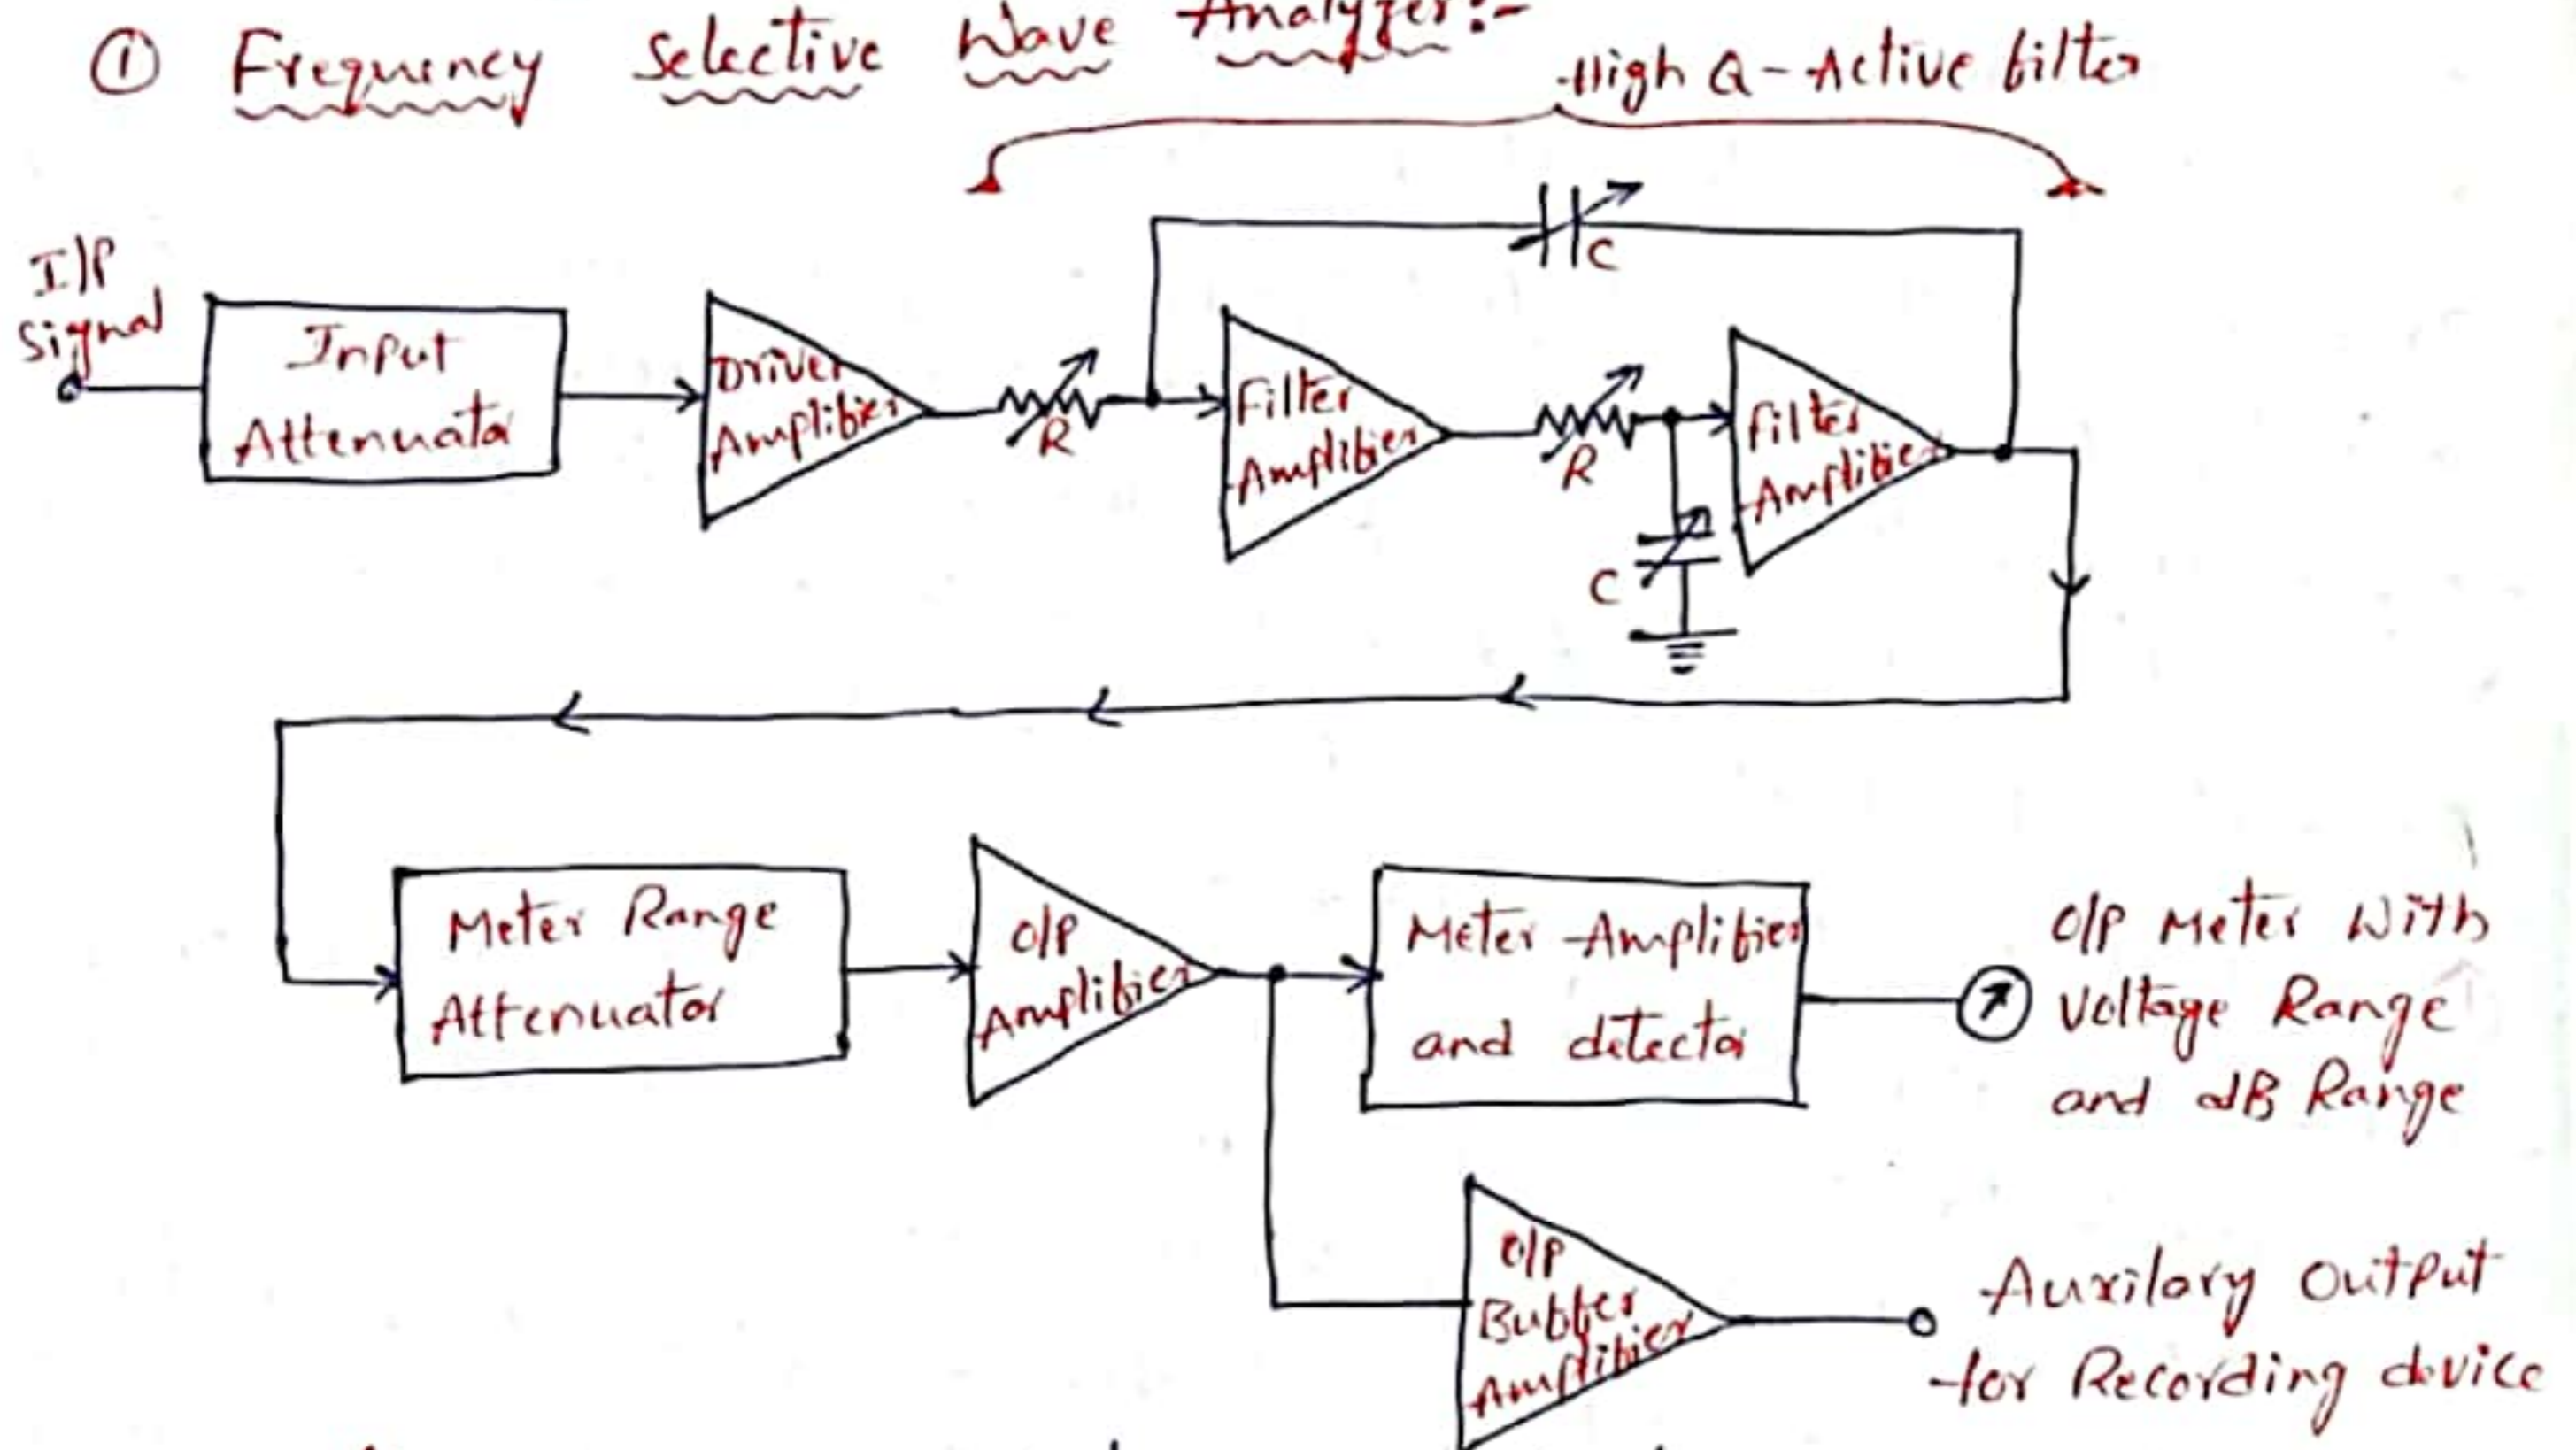 ① Frequency Selective Wave Analyzer:-
High Q-Active filter
I/P
Signal
Input
Attenuator
Driver
Amplifier
R
C
Filter
Amplifier
R
C
Filter
Amplifier
Meter Range
Attenuator
O/P
Amplifier
Meter Amplifier
and detector
O/P Meter With
Voltage Range
and dB Range
O/P
Buffer
Amplifier
Auxilary Output
for Recording device